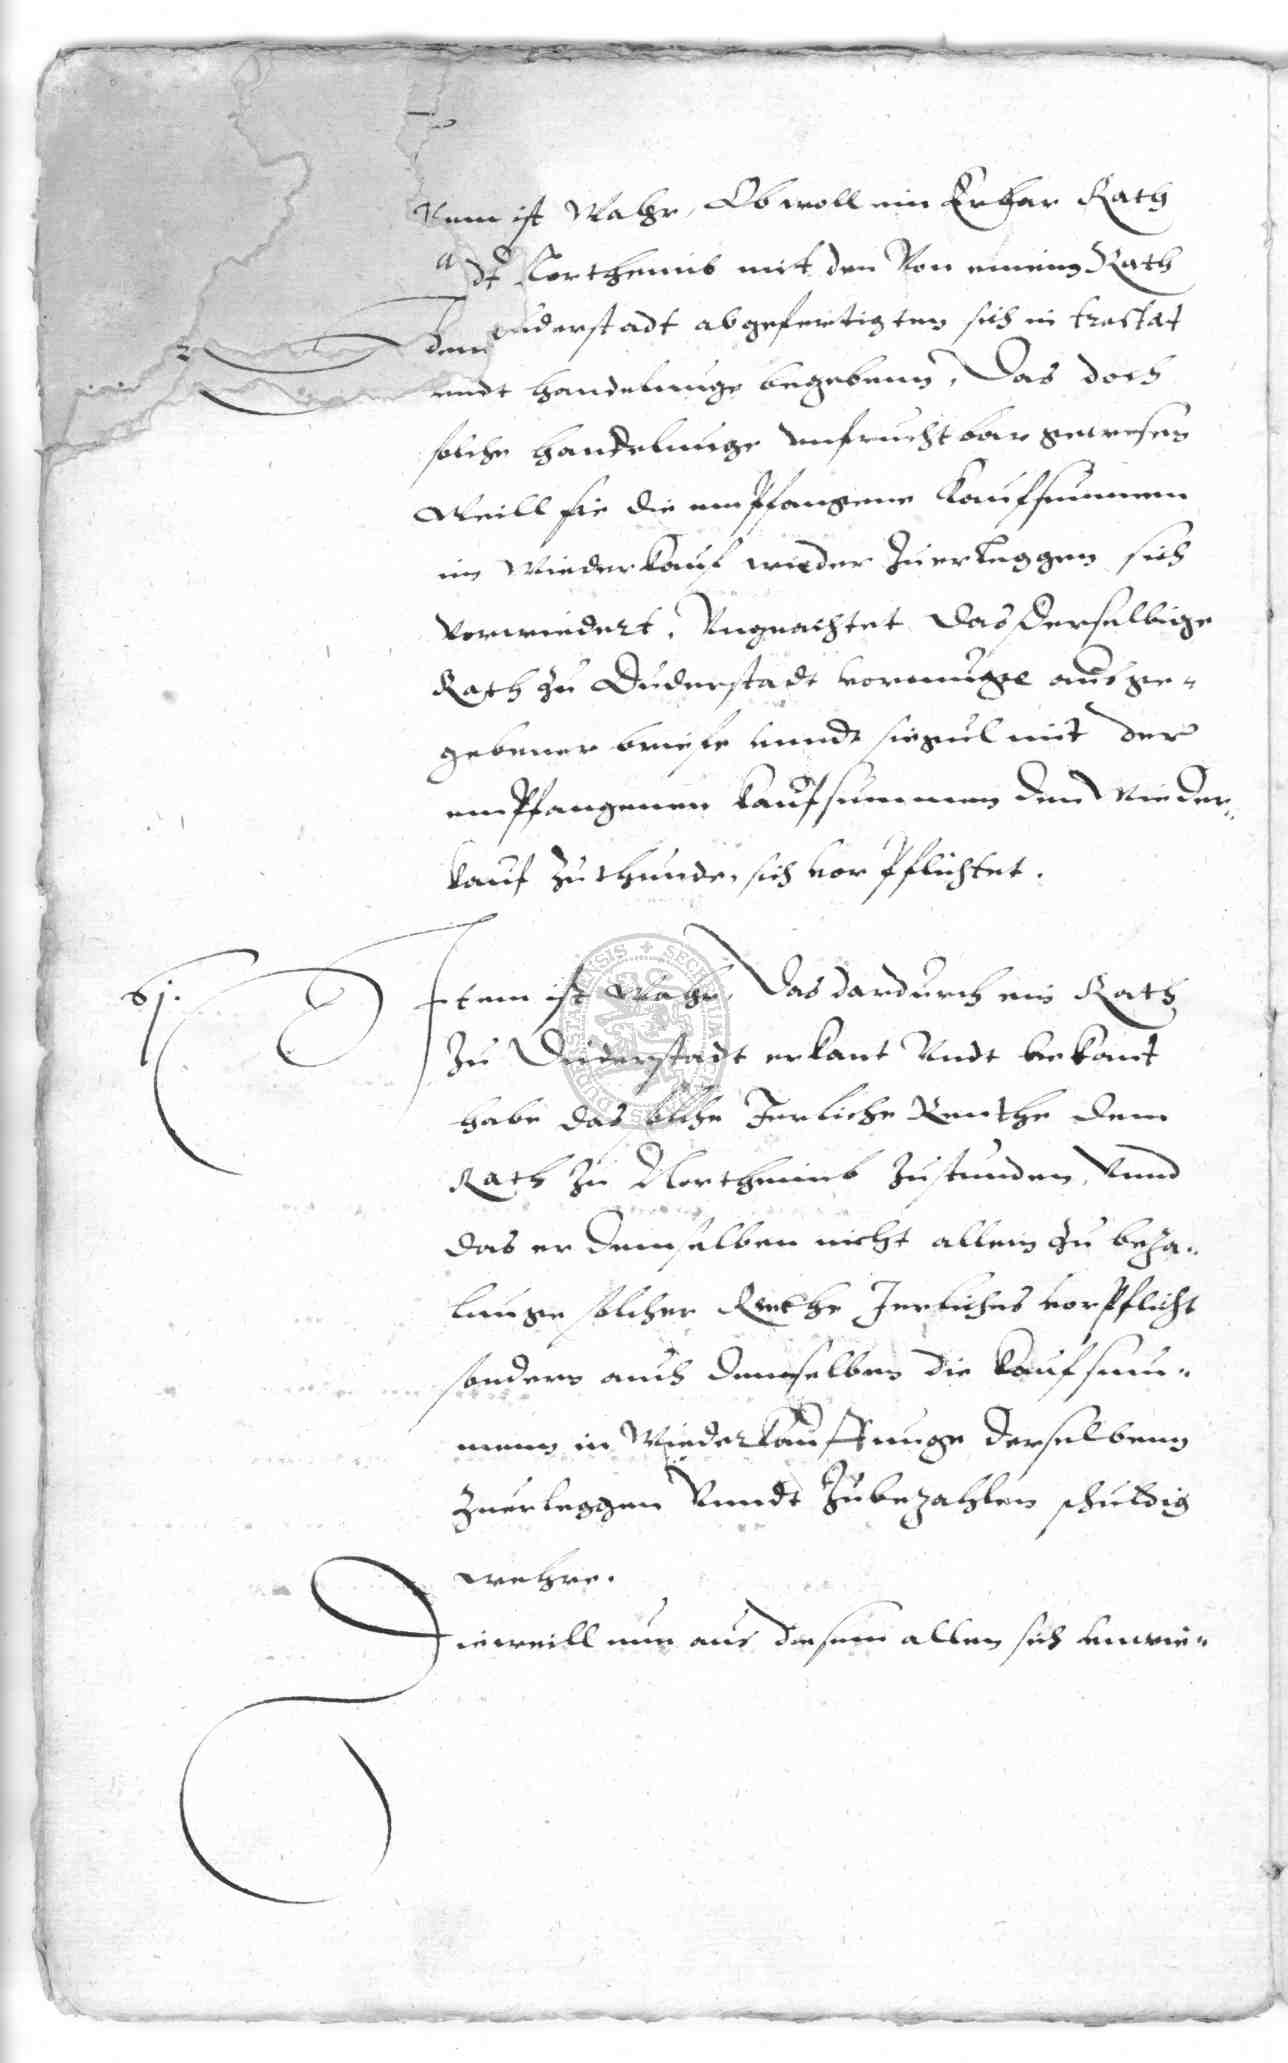 Item ist Wahr, Ob woll ein Erbar Rath
dt Northeimb mit den Von einem Rath
Duderstadt abgefertigten sich in tractat
vndt handelunge begebenn, Das doch
solche handelunge vnfruchtbar gewesen
Weill sie die empfangene Kaufsummen
im Wiederkauf wieder Zuerleggen sich
verwiedert, Vngeachtet das Derselbige
Rath Zu Duderstadt vormuge ausge-
gebener briefe vnndt siegul mit der
empfangenen Kaufsummen den Wieder-
kauf Zuthunde, sich vorpflichtet.
61.
Item ist Wahr, Das dardurch ein Rath
Zu Duderstadt erkant Vndt bekant
habe das solche Jerliche Renthe dem
Rath Zu Northeimb Zustunden, Vnnd
das er demselben nicht allein Zu beza-
lunge solcher Renthe Jerliches vorpflicht
sondern auch demselben die Kaufsum-
menn in Wiederkauffunge derselbenn
Zuerleggen Vnndt Zubezahlen schuldig
wehre.
Dieweill nun aus diesem allen sich
SECRETUM